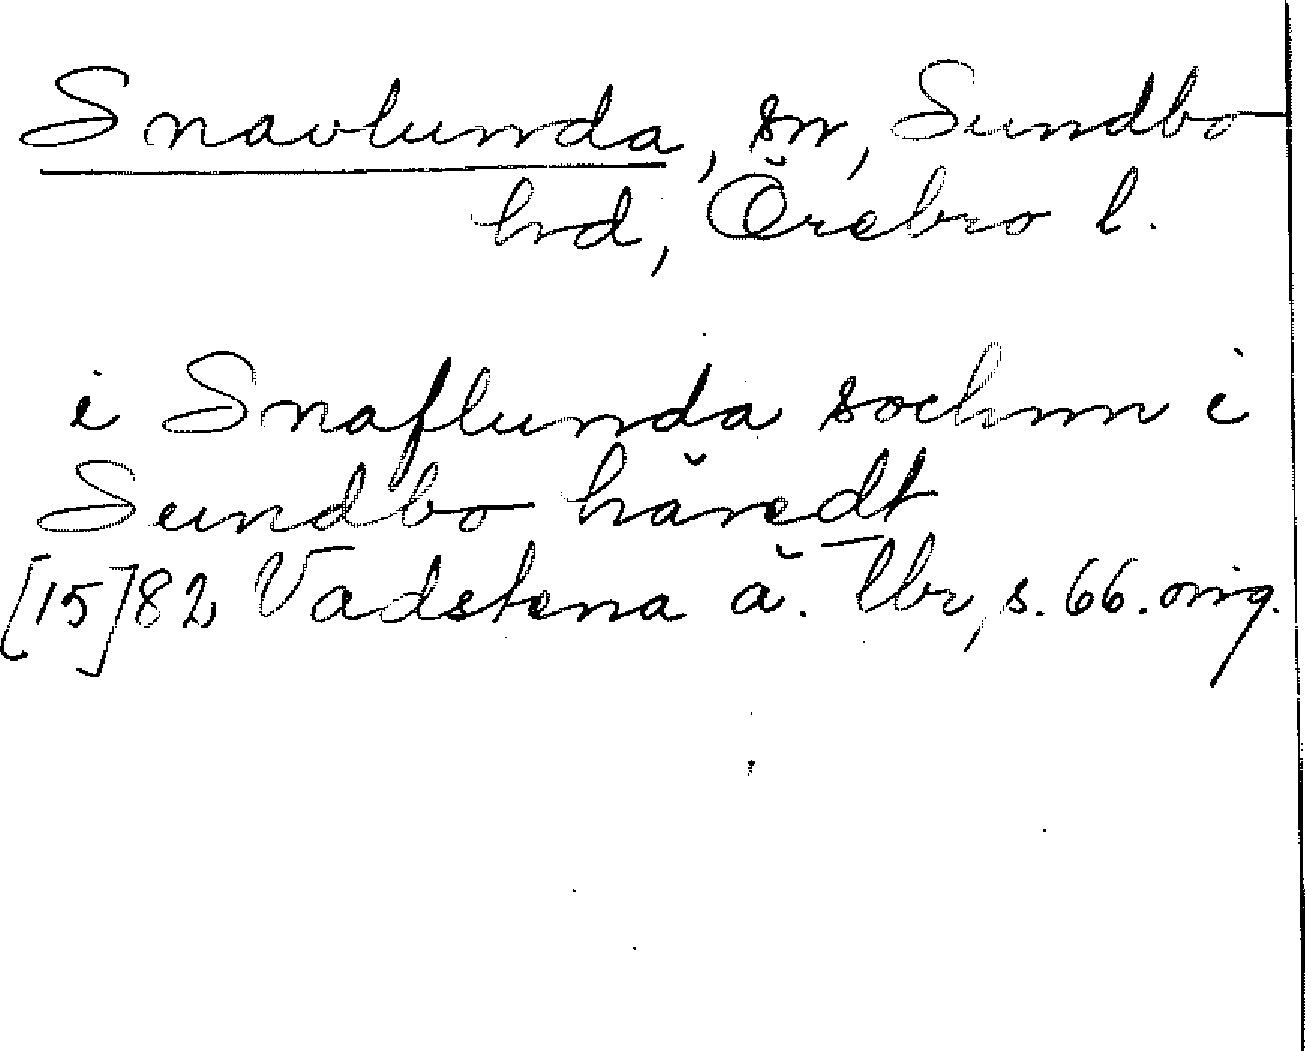 Snavlunda, sn, Sundbo
hd, Örebro l.
i Snaflunda sochnn i
Sundbo häredt
[15]82 Vadstena ä. Tbr, s. 66. orig.